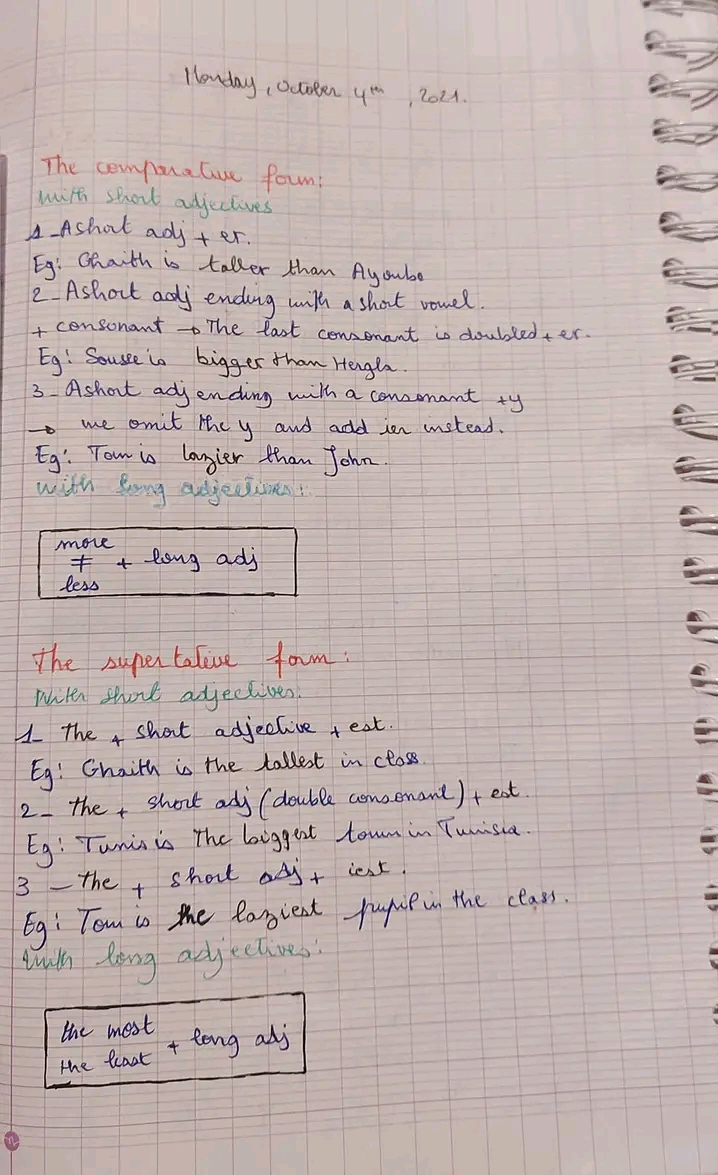 Monday, October 4th, 2021.
The comparative form:
With short adjectives
1-A short adj + er.
Eg: Ghaith is taller than Ayoub.
2-A short adj ending with a short vowel.
+ consonant → The last consonant is doubled + er.
Eg: Sousse is bigger than Hergla.
3-A short adj ending with a consonant +y
→ we omit the y and add ier instead.
Eg: Tom is lazier than John.
with long adjectives:
more
≠ + long adj
less
The superlative form:
With short adjectives:
1- the + short adjective + est.
Eg: Ghaith is the tallest in class.
2- the + short adj (double consonant) + est.
Eg: Tunis is the biggest town in Tunisia.
3 - the + short adj + iest.
Eg: Tom is the laziest pupil in the class.
With long adjectives:
the most
the least + long adj